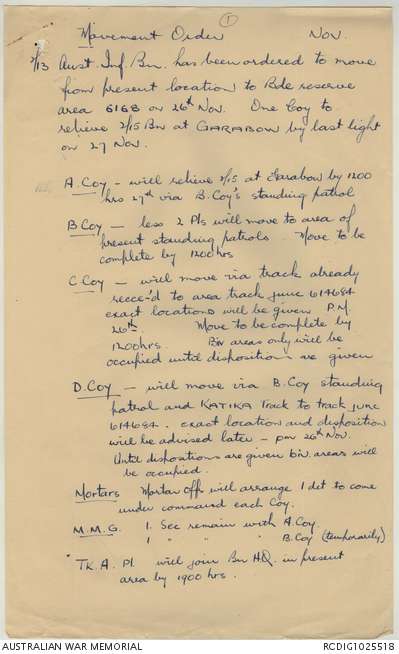 ①
Movement Order Nov.
2/13 Aust. Inf. Bn. has been ordered to move
from present location to Bde reserve
area 6168 on 26th Nov. One Coy to
relieve 2/15 Bn at GARABOW by last light
on 27 Nov.
A. Coy – will relieve 2/15 at Garabow by 1200
hrs 27th via B. Coy's standing patrol
B Coy – less 2 Pls will move to area of
present standing patrols. Move to be
complete by 1200 hrs
C. Coy – will move via track already
recce-d to area track junc 614684
exact locations will be given P.M.
26th. Move to be complete by
1200 hrs. Biv areas only will be
occupied until dispositions are given
D. Coy – will move via B. Coy standing
patrol and KATIKA Track to track junc
614684. exact location and disposition
will be advised later – pm 26th Nov.
Until dispositions are given biv. areas will
be occupied.
Mortars Mortar Offr will arrange 1 det to come
under command each Coy.
M.M.G. 1. Sec remain with A. Coy.
1 " " " B. Coy (temporarily)
TK. A. Pl will join Bn HQ. in present
area by 1900 hrs.
AUSTRALIAN WAR MEMORIAL RCDIG1025518